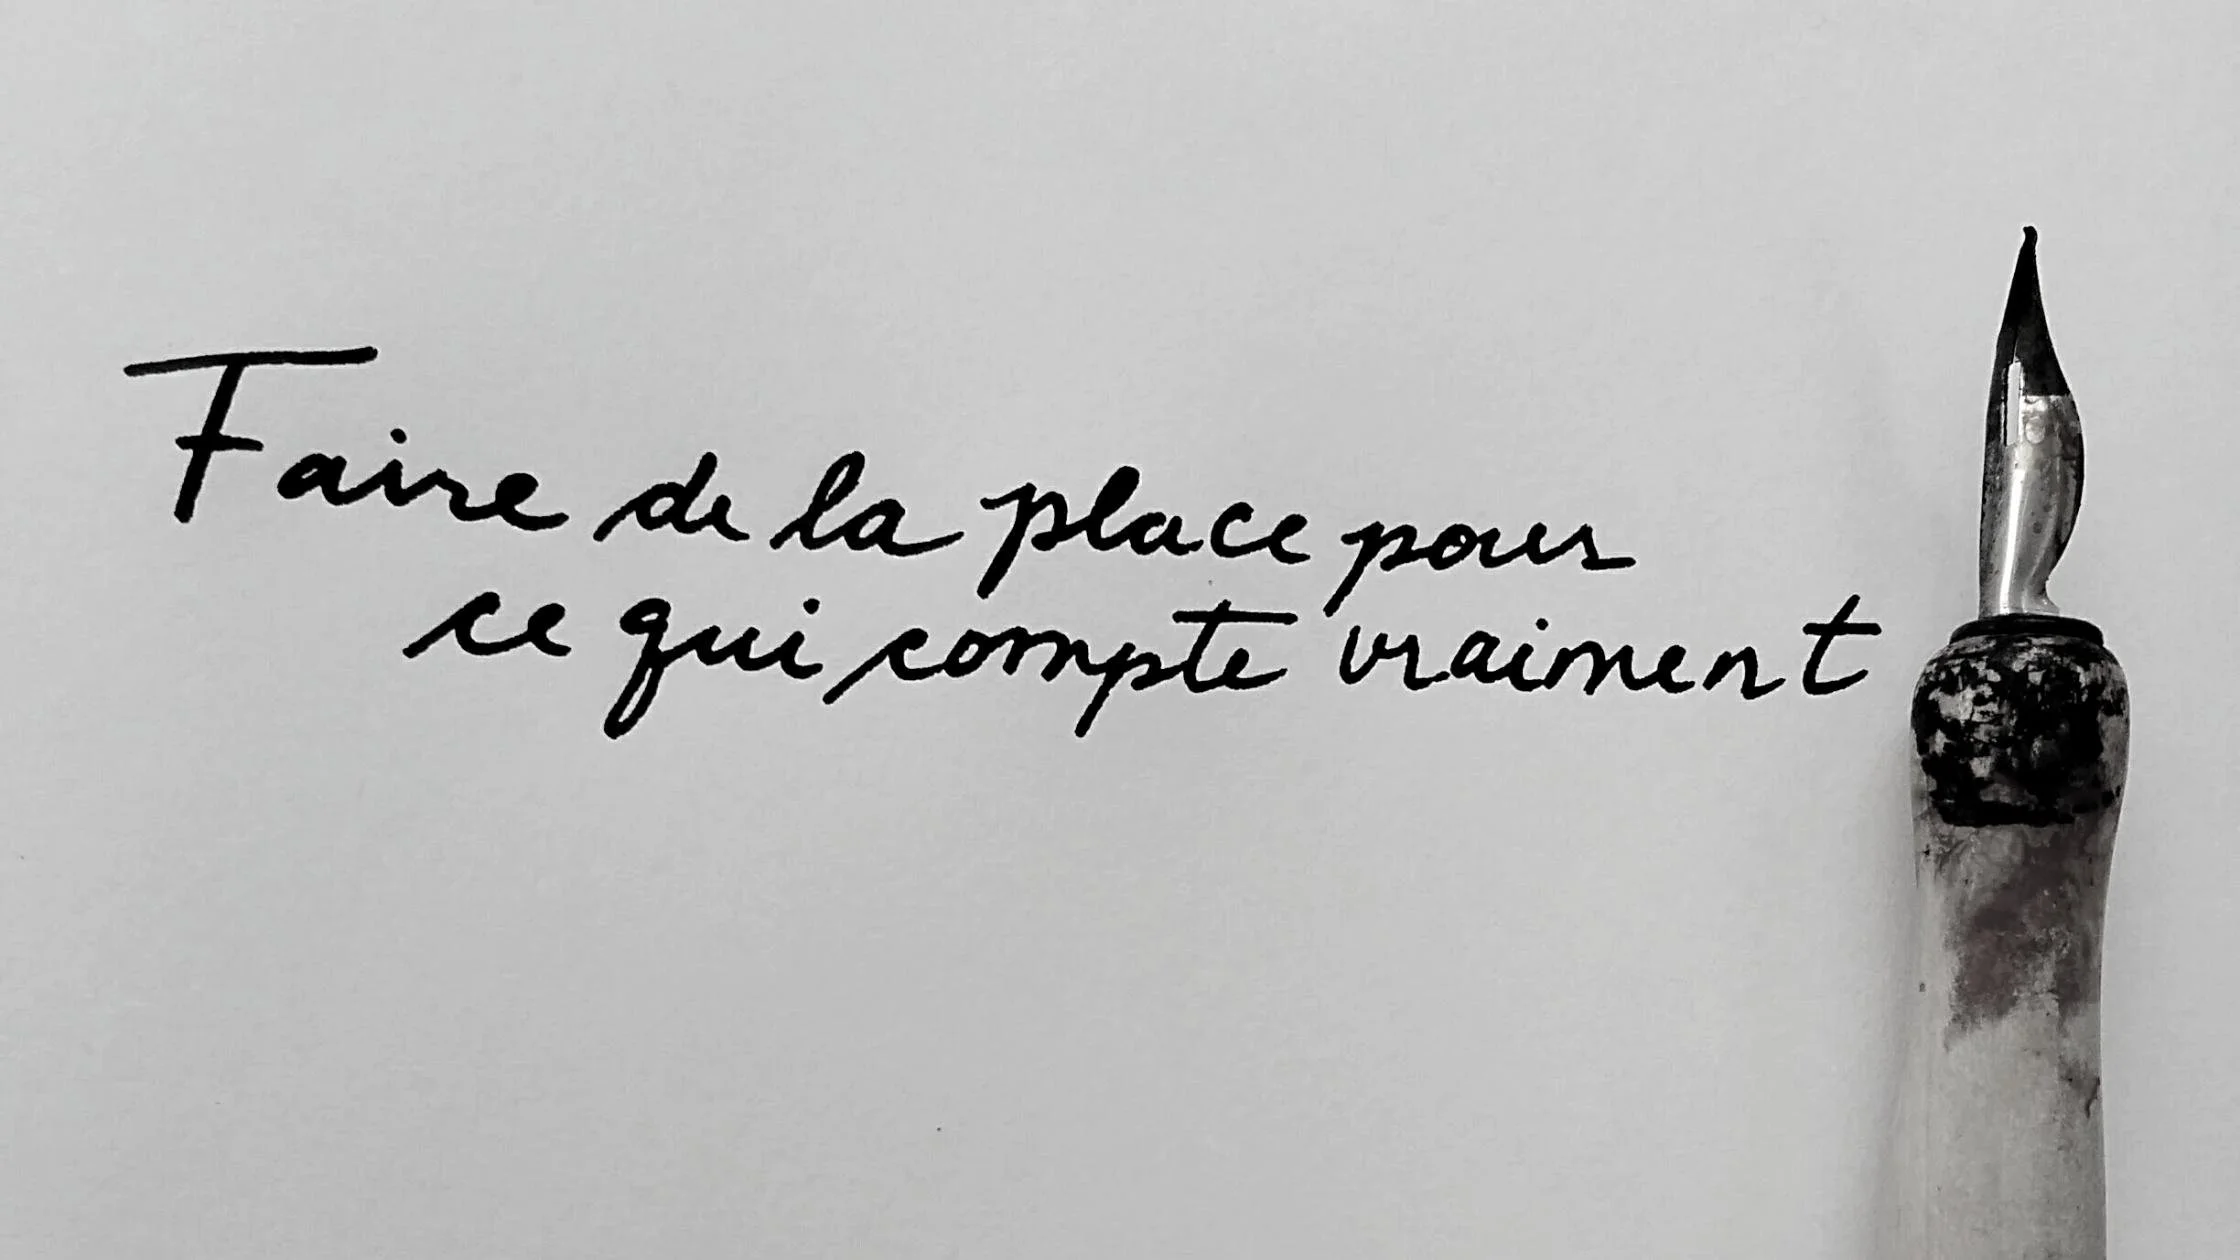 Faire de la place pour
ce qui compte vraiment